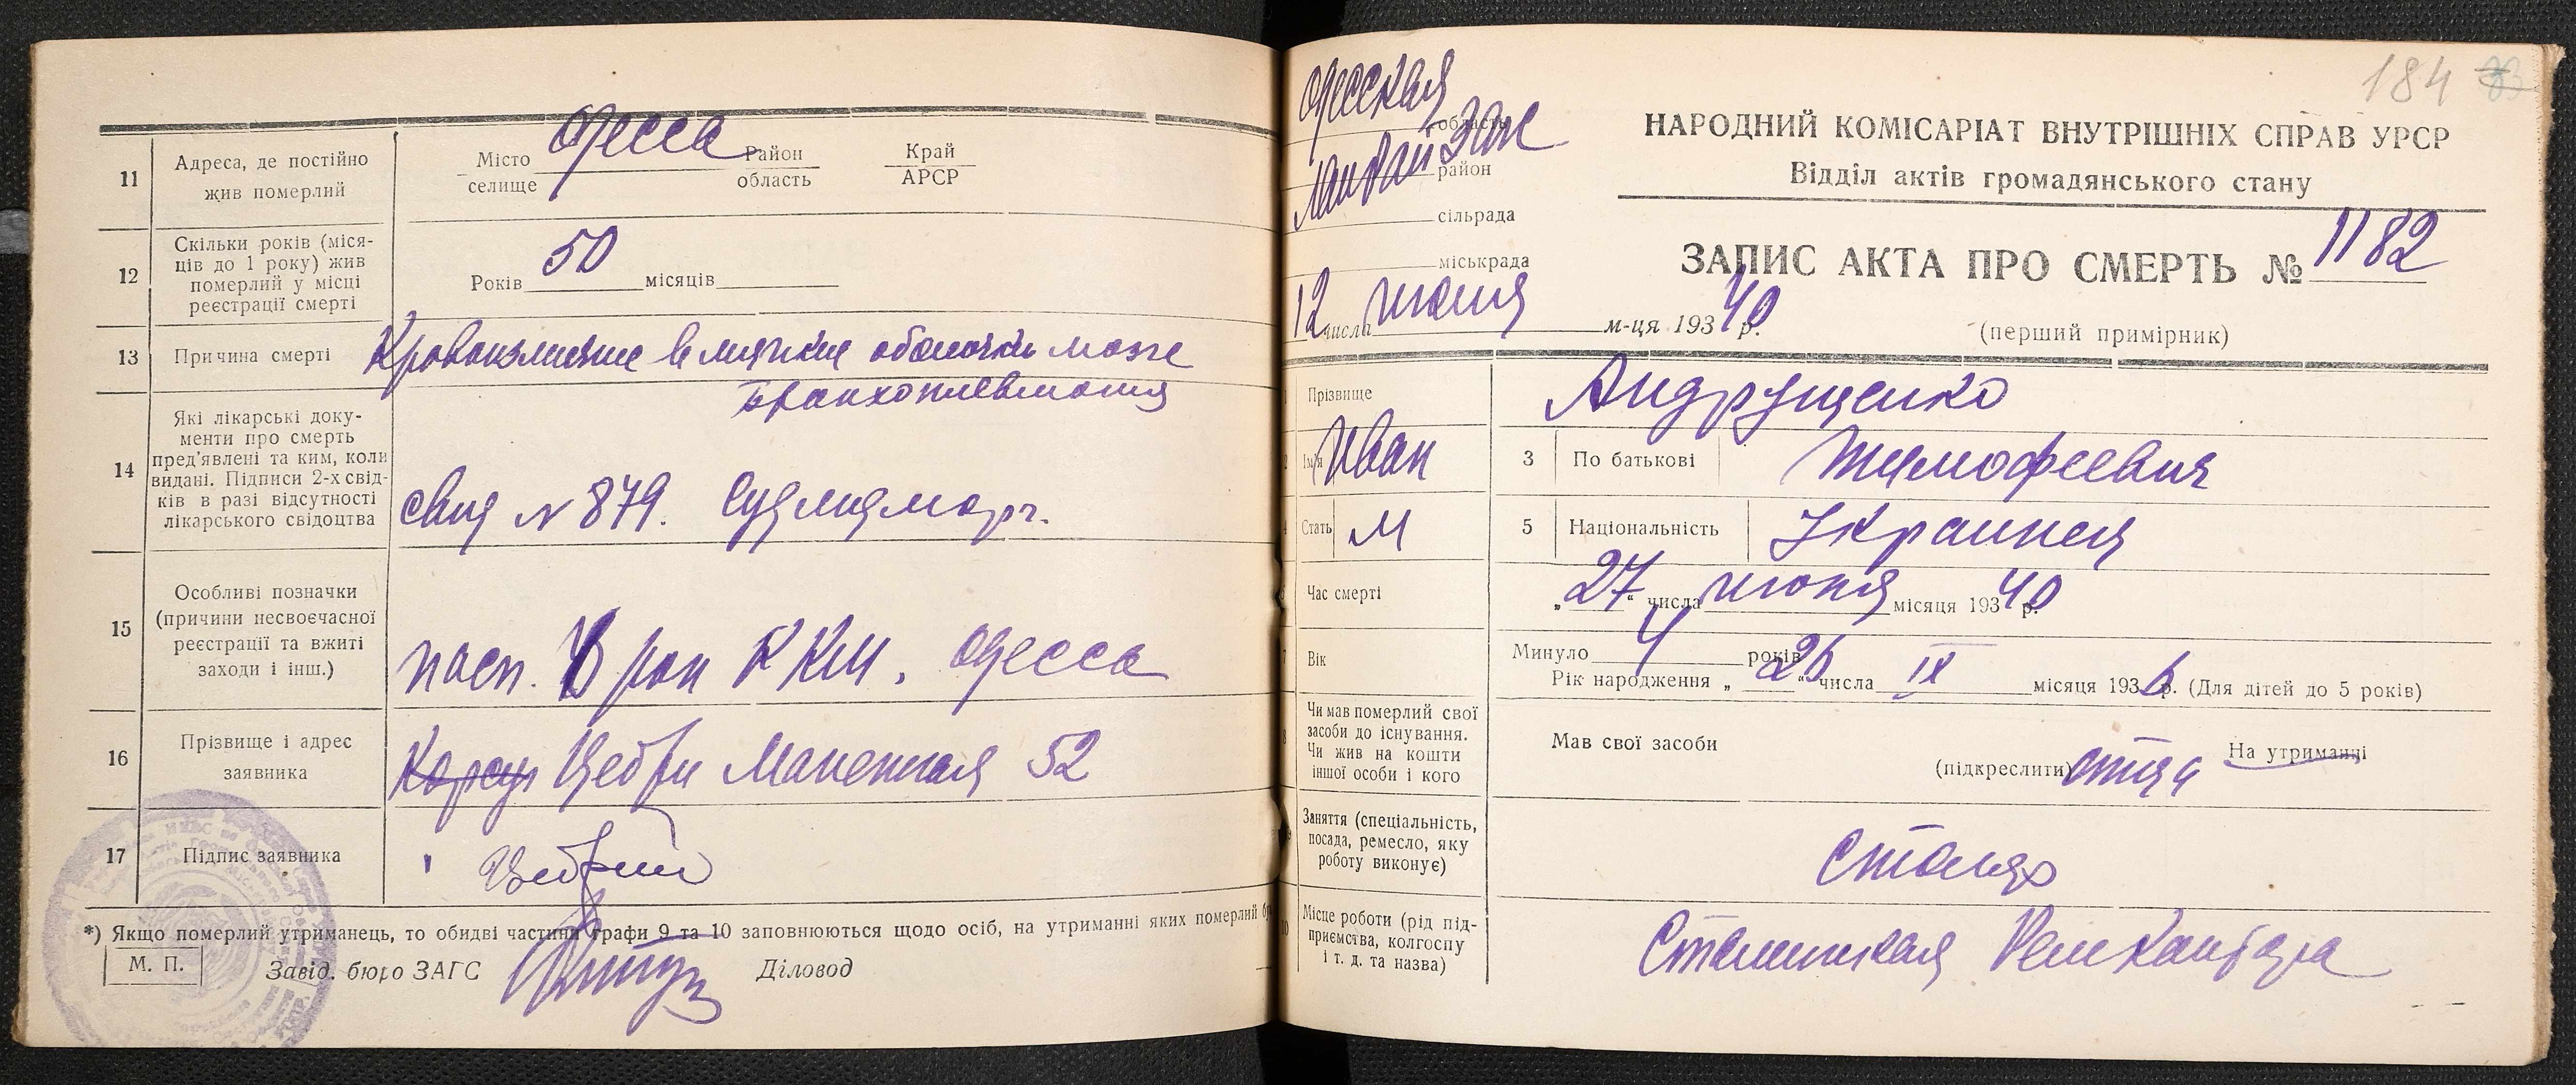 11 Адреса, де постійно
жив померлий
Місто Одесса Район Край
селище область АРСР
12 Скільки років (міся-
ців до 1 року) жив
померлий у місці
реєстрації смерті
Років 50 місяців
13 Причина смерті Кровоизлияние в мягкие оболочки мозге
Бранхопневмония
14 Які лікарські доку-
менти про смерть
пред'явлені та ким, коли
видані. Підписи 2-х свід-
ків в разі відсутності
лікарського свідоцтва
свид N 879. Судмедморг.
15 Особливі позначки
(причини несвоєчасної
реєстрації та вжиті
заходи і інш.)
пасп. рон ККМ. Одесса
16 Прізвище і адрес
заявника
52
17 Підпис заявника
*) Якщо померлий утриманець, то обидві частини графи 9 та 10 заповнюються щодо осіб, на утриманні яких померлий
М. П. Завід. бюро ЗАГС Діловод
184
Одесская
область
район
сільрада
міськрада
12 числа июля м-ця 193 40 р.
НАРОДНИЙ КОМІСАРІАТ ВНУТРІШНІХ СПРАВ УРСР
Відділ актів громадянського стану
ЗАПИС АКТА ПРО СМЕРТЬ № 1182
(перший примірник)
Прізвище Андрущенко
Ім'я Иван 3 По батькові Тимофеевич
Стать М 5 Національність Украинец
Час смерті „27“ числа июня місяця 193 40 р.
Вік Минуло 4 років
Рік народження „26“ числа IX місяця 1936 р. (Для дітей до 5 років)
Чи мав померлий свої
засоби до існування.
Чи жив на кошти
іншої особи і кого
Мав свої засоби
(підкреслити) отца На утриманні
Заняття (спеціальність,
посада, ремесло, яку
роботу виконує)
Столяр
Місце роботи (рід під-
приємства, колгоспу
і т. д. та назва)
Сталинская РемКонтора